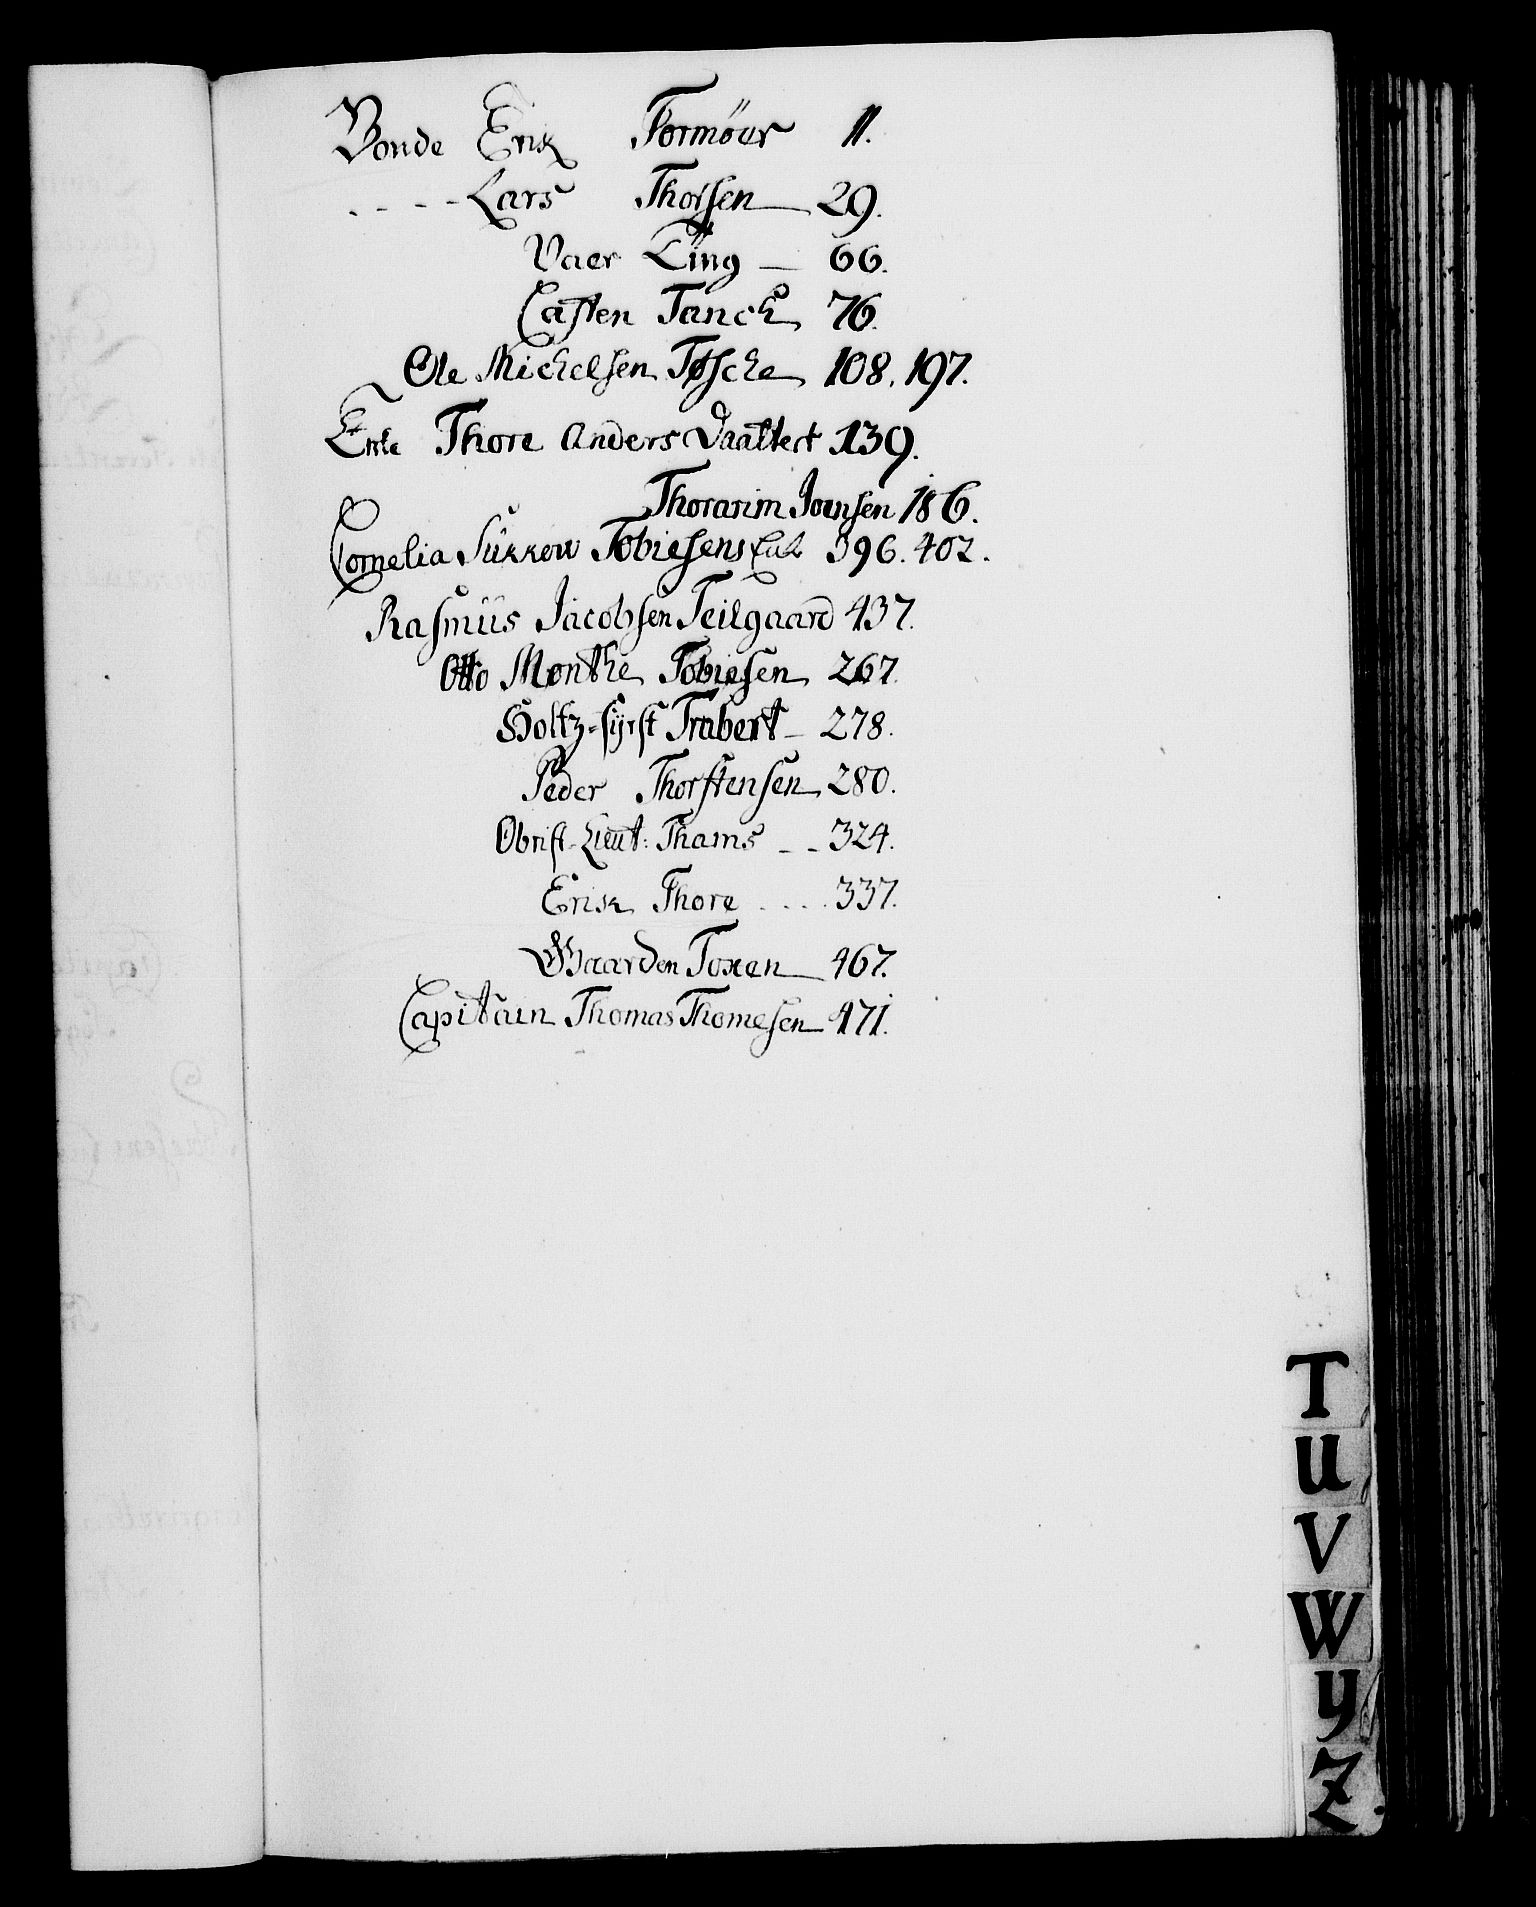 Bonde Erik Tormöer 11.
- - - - Lars Thorsen 29.
Vaer Ting 66.
Casten Tanck 76.
Ole Michelsen Tøsche 108. 197.
Enke Thore Anders Daatter 139.
Thorarim Joensen 186.
Cornelia Sükkow Tobiesens Enk 396. 402.
Rasmüs Jacobsen Teilgaard 437.
Otto Monthe Tobiesen 267.
Holtz-fyrst Trabert 278.
Peder Thorstensen 280.
Obrist-Lieut: Thams 324.
Erik Thore 337.
Gaarden Toxen 467.
Capitain Thomas Thomesen 471.
T
U
V
W
Y
Z